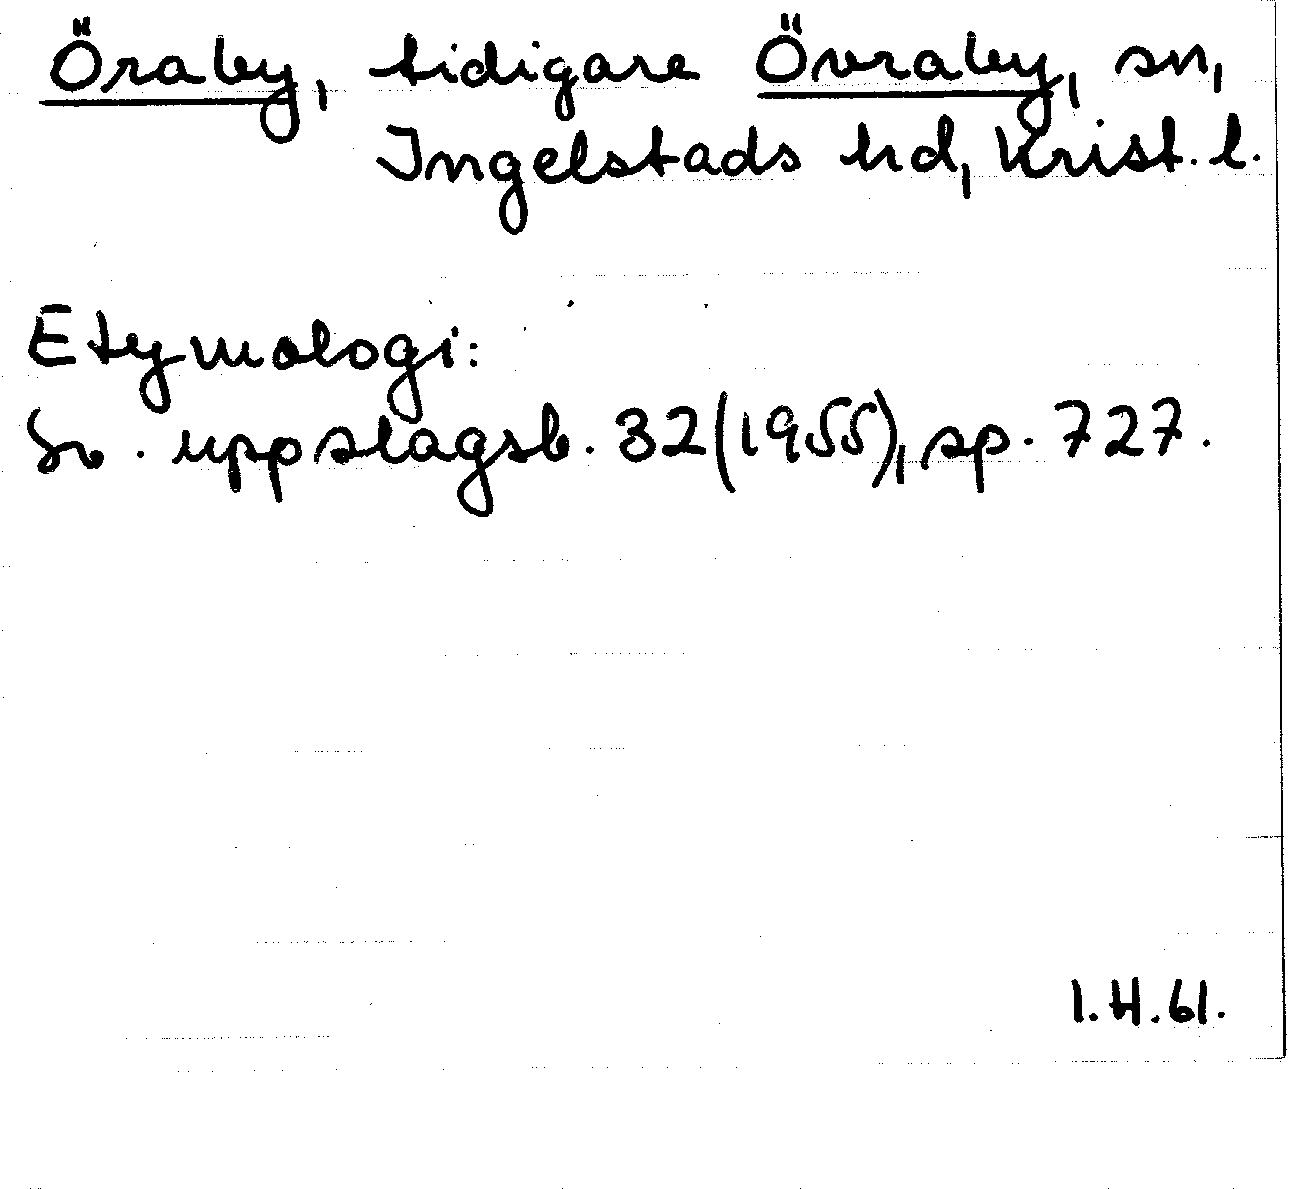 Öraby, tidigare Övraby, sn,
Ingelstads hd, Krist. l.
Etymologi:
Sv. uppslagsb. 32(1955), sp. 727.
I.H.61.